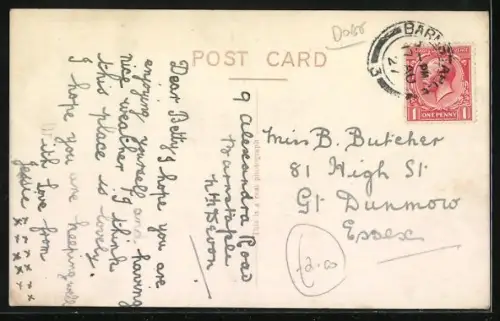 POST CARD
9 Alexandra Road
Barnstaple
Nth Devon
Dear Betty I hope you are
enjoying yourself and having
nice weather. I think
this place is lovely.
I hope you are keeping well
With love from
Jessie
x x x x x x
Miss B. Butcher
81 High St
Gt Dunmow
Essex
ONE PENNY
1 1
BARN
3
21